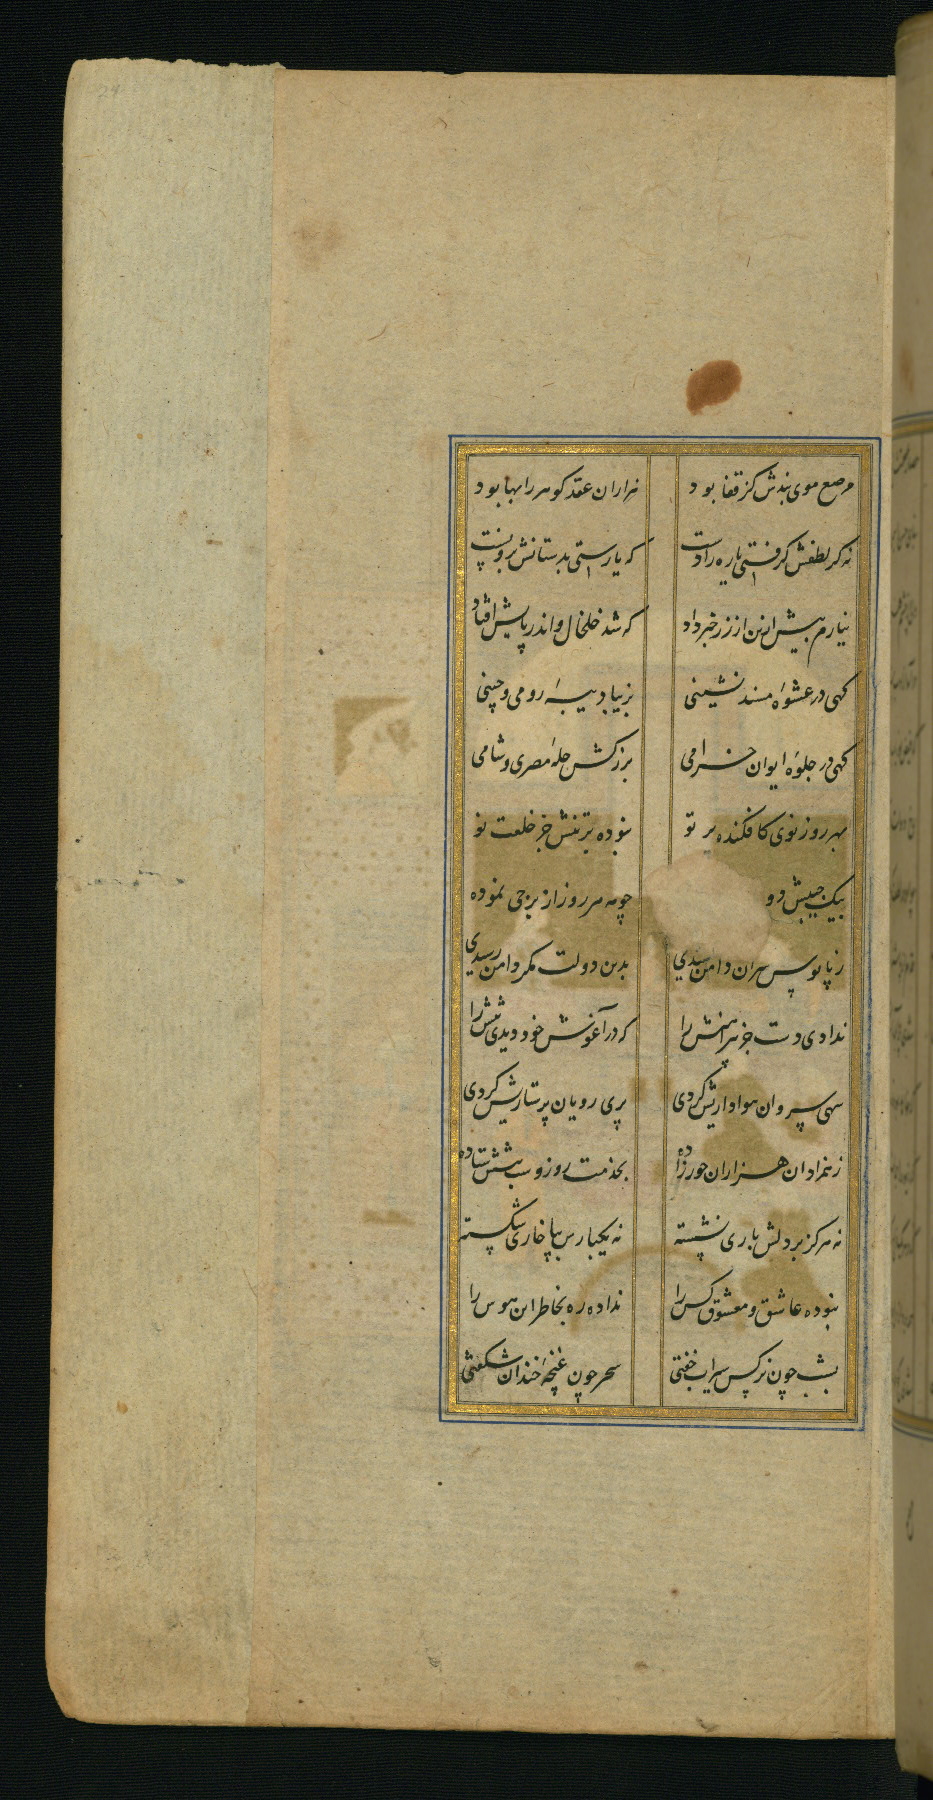 مرصع موی بندش کز قفا بود هزاران عقد کوهر را بها بود
نه کر لطفش کرفتی یاره را دست که یارستی بدستانش برو بست
نیارم بیش ازین از زر خبر داد که شد خلخال و اندر پایش افتاد
کهی در عشوهٔ مسند نشینی بزیبا دیبهٔ رومی و چینی
کهی در جلوهٔ ایوان خرامی بزرکش حلهٔ مصری و شامی
بهر روز نوی کافکنده پرتو نبوده بر تنش جز خلعت نو
بیک جیبش دو چو مه هر روز از برجی نموده
ز پا بوس سران دامن کشیدی بدین دولت مکر دامن رسیدی
ندادی دست جز پیراهنش را که در آغوش خود دیدی تنش را
سهی سروان هواداریش کردی پری رویان پرستاریش کردی
ز همزادان هزاران حورزاده بخدمت روز و شب پیشش ستاده
نه هرکز بر دلش باری نشسته نه یکبارش بپا خاری شکسته
نبوده عاشق و معشوق کس را نداده ره بخاطر این هوس را
بشب چون نرکس سیراب خفتی سحر چون غنچهٔ خندان شکفتی